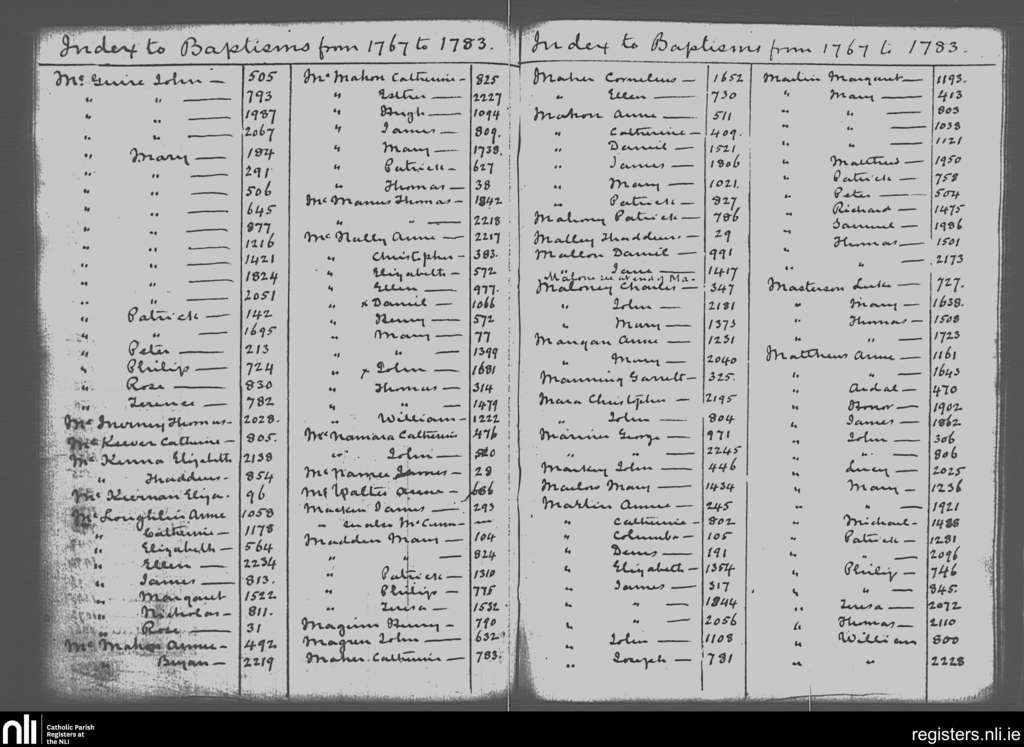 Index to Baptisms from 1767 to 1783.
Mc Guire John — 505
" " — 793
" " — 1987
" " — 2067
" Mary — 184
" " — 291
" " — 506
" " — 645
" " — 877
" " — 1216
" " — 1421
" " — 1824
" " — 2051
" Patrick — 142
" " — 1695
" Peter — 213
" Philip — 724
" Rose — 830
" Terence — 782
Mc Inerney Thomas - 2028.
Mc Keever Catherine - 805.
Mc Kenna Elizabeth 2138
" Thaddeus - 854
Mc Kiernan Eliza. 96
Mc Loughlin Anne 1058
" Catherine — 1178
" Elizabeth — 564
" Ellen — 2234
" James — 813.
" Margaret 1522
" Nicholas - 811.
" Rose — 31
Mc Mahon Anne - 492
" Bryan — 2219
Mc Mahon Catherine - 825
" Esther — 2227
" Hugh — 1094
" James — 809.
" Mary — 1738.
" Patrick - 627
" Thomas - 38
Mc Manus Thomas - 1842
" " — 2218
Mc Nally Anne — 2217
" Christopher - 383.
" Elizabeth - 572
" Ellen — 977.
" x Daniel — 1066
" Henry — 572
" Mary — 77
" " — 1399
" x John — 1681
" Thomas — 314
" " — 1479
" William - 1222
Mc Namara Catherine 476
" John — 520
Mc Namee James - 28
Mc Walter Anne - 686
James — 293
" See also Mc Cunn - —
Madden Mary — 104
" " — 824
" Patrick — 1310
" Philip — 775
" Teresa — 1532
Maginn Henry — 790
Magren John — 632
Maher Catherine — 783.
Index to Baptisms from 1767 to 1783.
Maher Cornelius — 1652
" Ellen — 730
Mahon Anne — 511
" Catherine - 409.
" Daniel — 1521
" James — 1806
" Mary — 1021.
" Patrick — 827
Mahony Patrick — 786
Malley Thaddeus - 29
Mallon Daniel — 991
" Jane — 1417
Malone see at end of Ma-
Maloney Charles — 347
" John — 2181
" Mary — 1373
Mangan Anne — 1231
" Mary — 2040
Manning Garrett - 325.
Mara Christopher — 2195
" John — 804
Mariner George — 971
" " — 2245
Markey John — 446
Marlow Mary — 1434
Martin Anne — 245
" Catherine - 802
" Columba - 105
" Denis — 191
" Elizabeth — 1354
" James — 317
" " — 1844
" " — 2056
" John — 1108
" Joseph — 781
Martin Margaret — 1193.
" Mary — 413
" " — 803
" " — 1038
" " — 1121
" Matthew — 1950
" Patrick — 758
" Peter — 504
" Richard — 1475
" Samuel — 1986
" Thomas — 1501
" " — 2173
Masterson Luke — 727.
" Mary — 1638.
" Thomas — 1508
" " — 1723
Matthews Anne — 1161
" " — 1643
" Andal — 470
" Honor — 1902
" James — 1862
" John — 306
" " — 806
" Lucy — 2025
" Mary — 1236
" " — 1921
" Michael - 1488
" Patrick — 1281
" " — 2096
" Philip — 746
" " — 845.
" Teresa — 2072
" Thomas — 2110
" William 800
" " 2228
nli Catholic Parish
Registers at
the NLI
registers.nli.ie